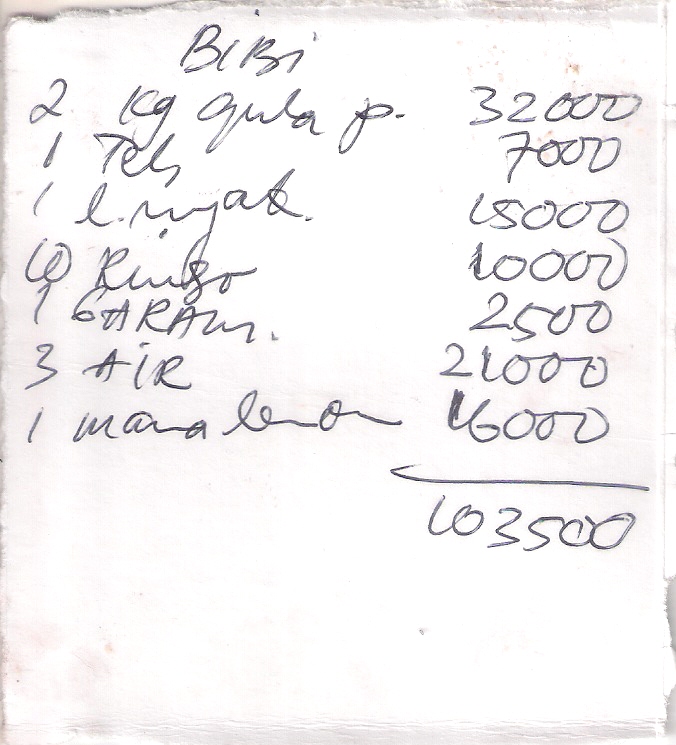 BiBi
2 Kg gula p. 32000
1 Teh 7000
1 l. minyak. 15000
10 Rinso 10000
1 GARAM. 2500
3 AiR 21000
1 mama lemon 16000
103500